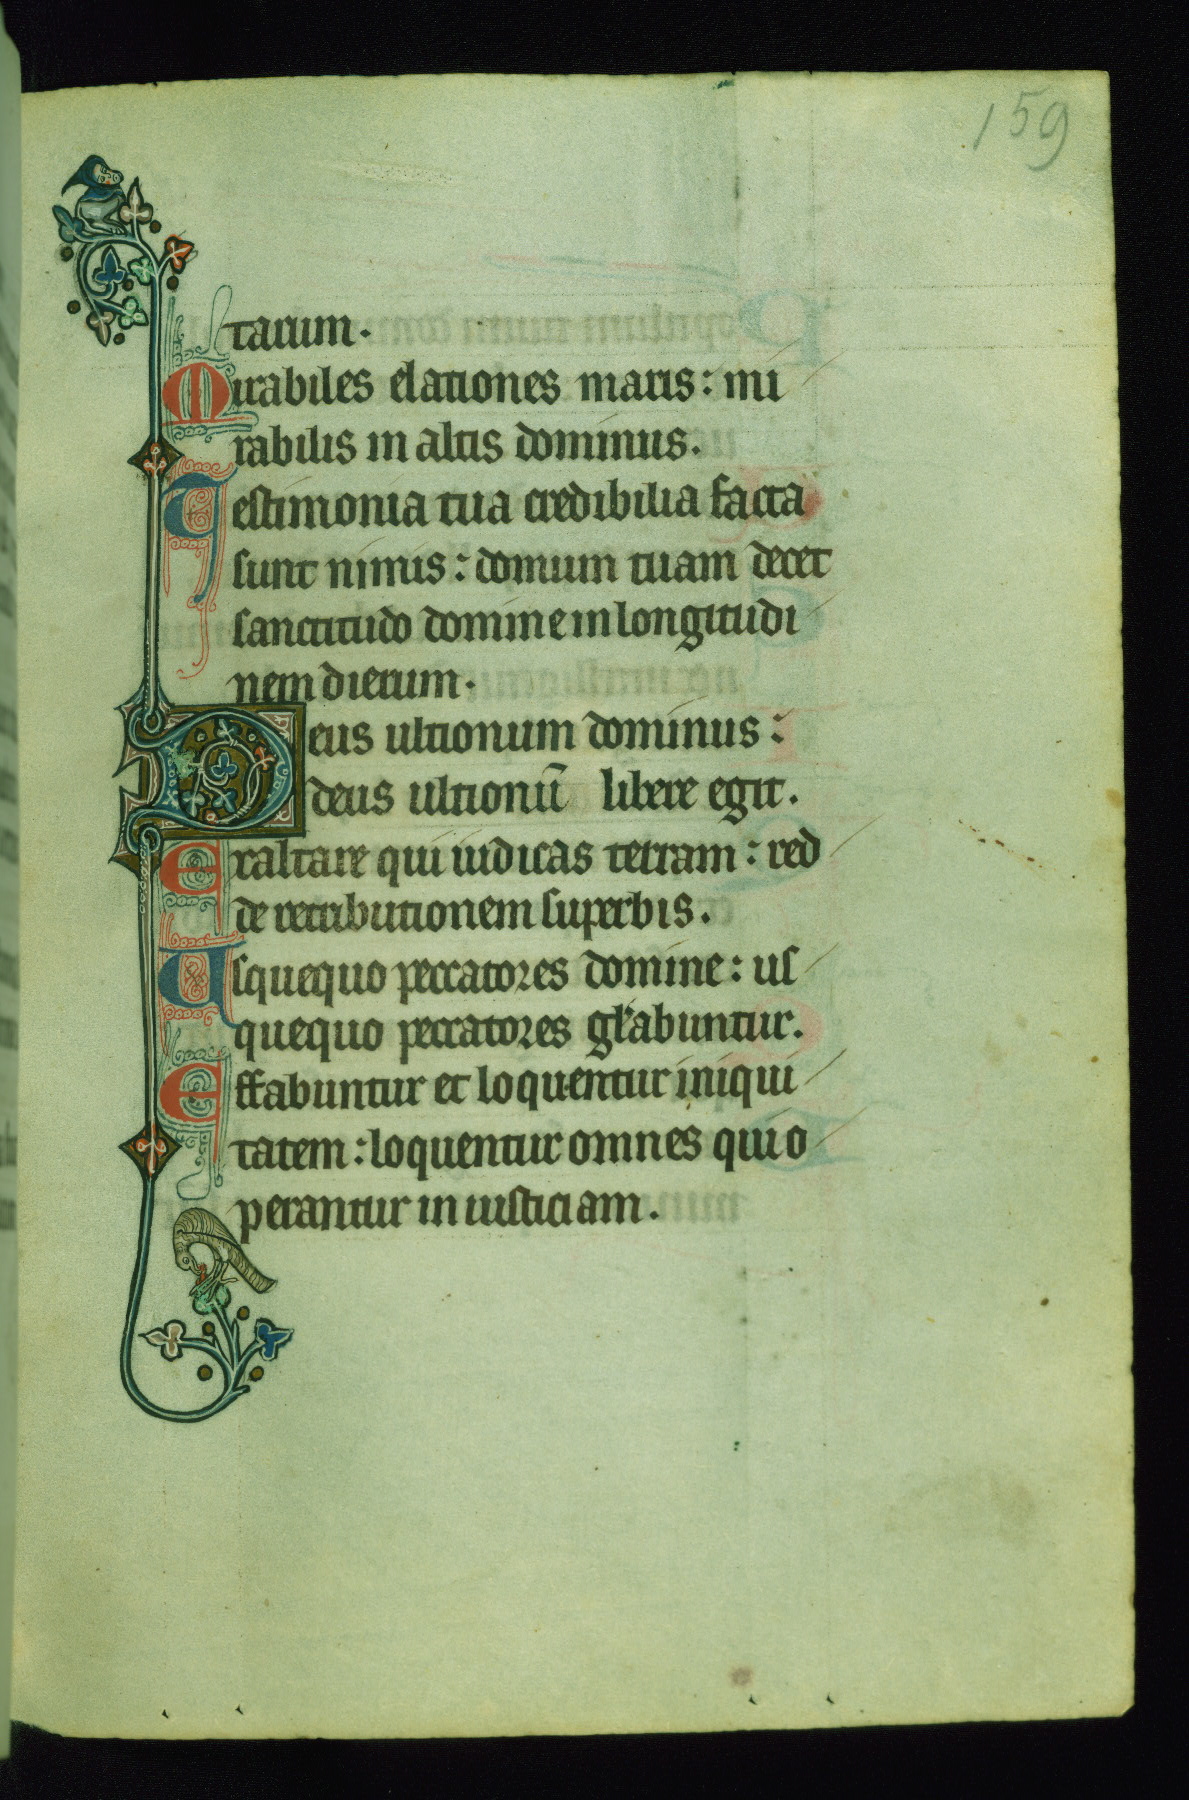 159
tarum.
Mirabiles elationes maris: mi
rabilis in altis dominus.
Testimonia tua credibilia facta
sunt nimis: domum tuam decet
sanctitudo domine in longitudi
nem dierum.
Deus ultionum dominus:
deus ultionū libere egit.
Exaltare qui iudicas terram: red
de retributionem superbis.
Usquequo peccatores domine: us
quequo peccatores gl'abuntur.
Effabuntur et loquentur iniqui
tatem: loquentur omnes qui o
perantur in iusticiam.